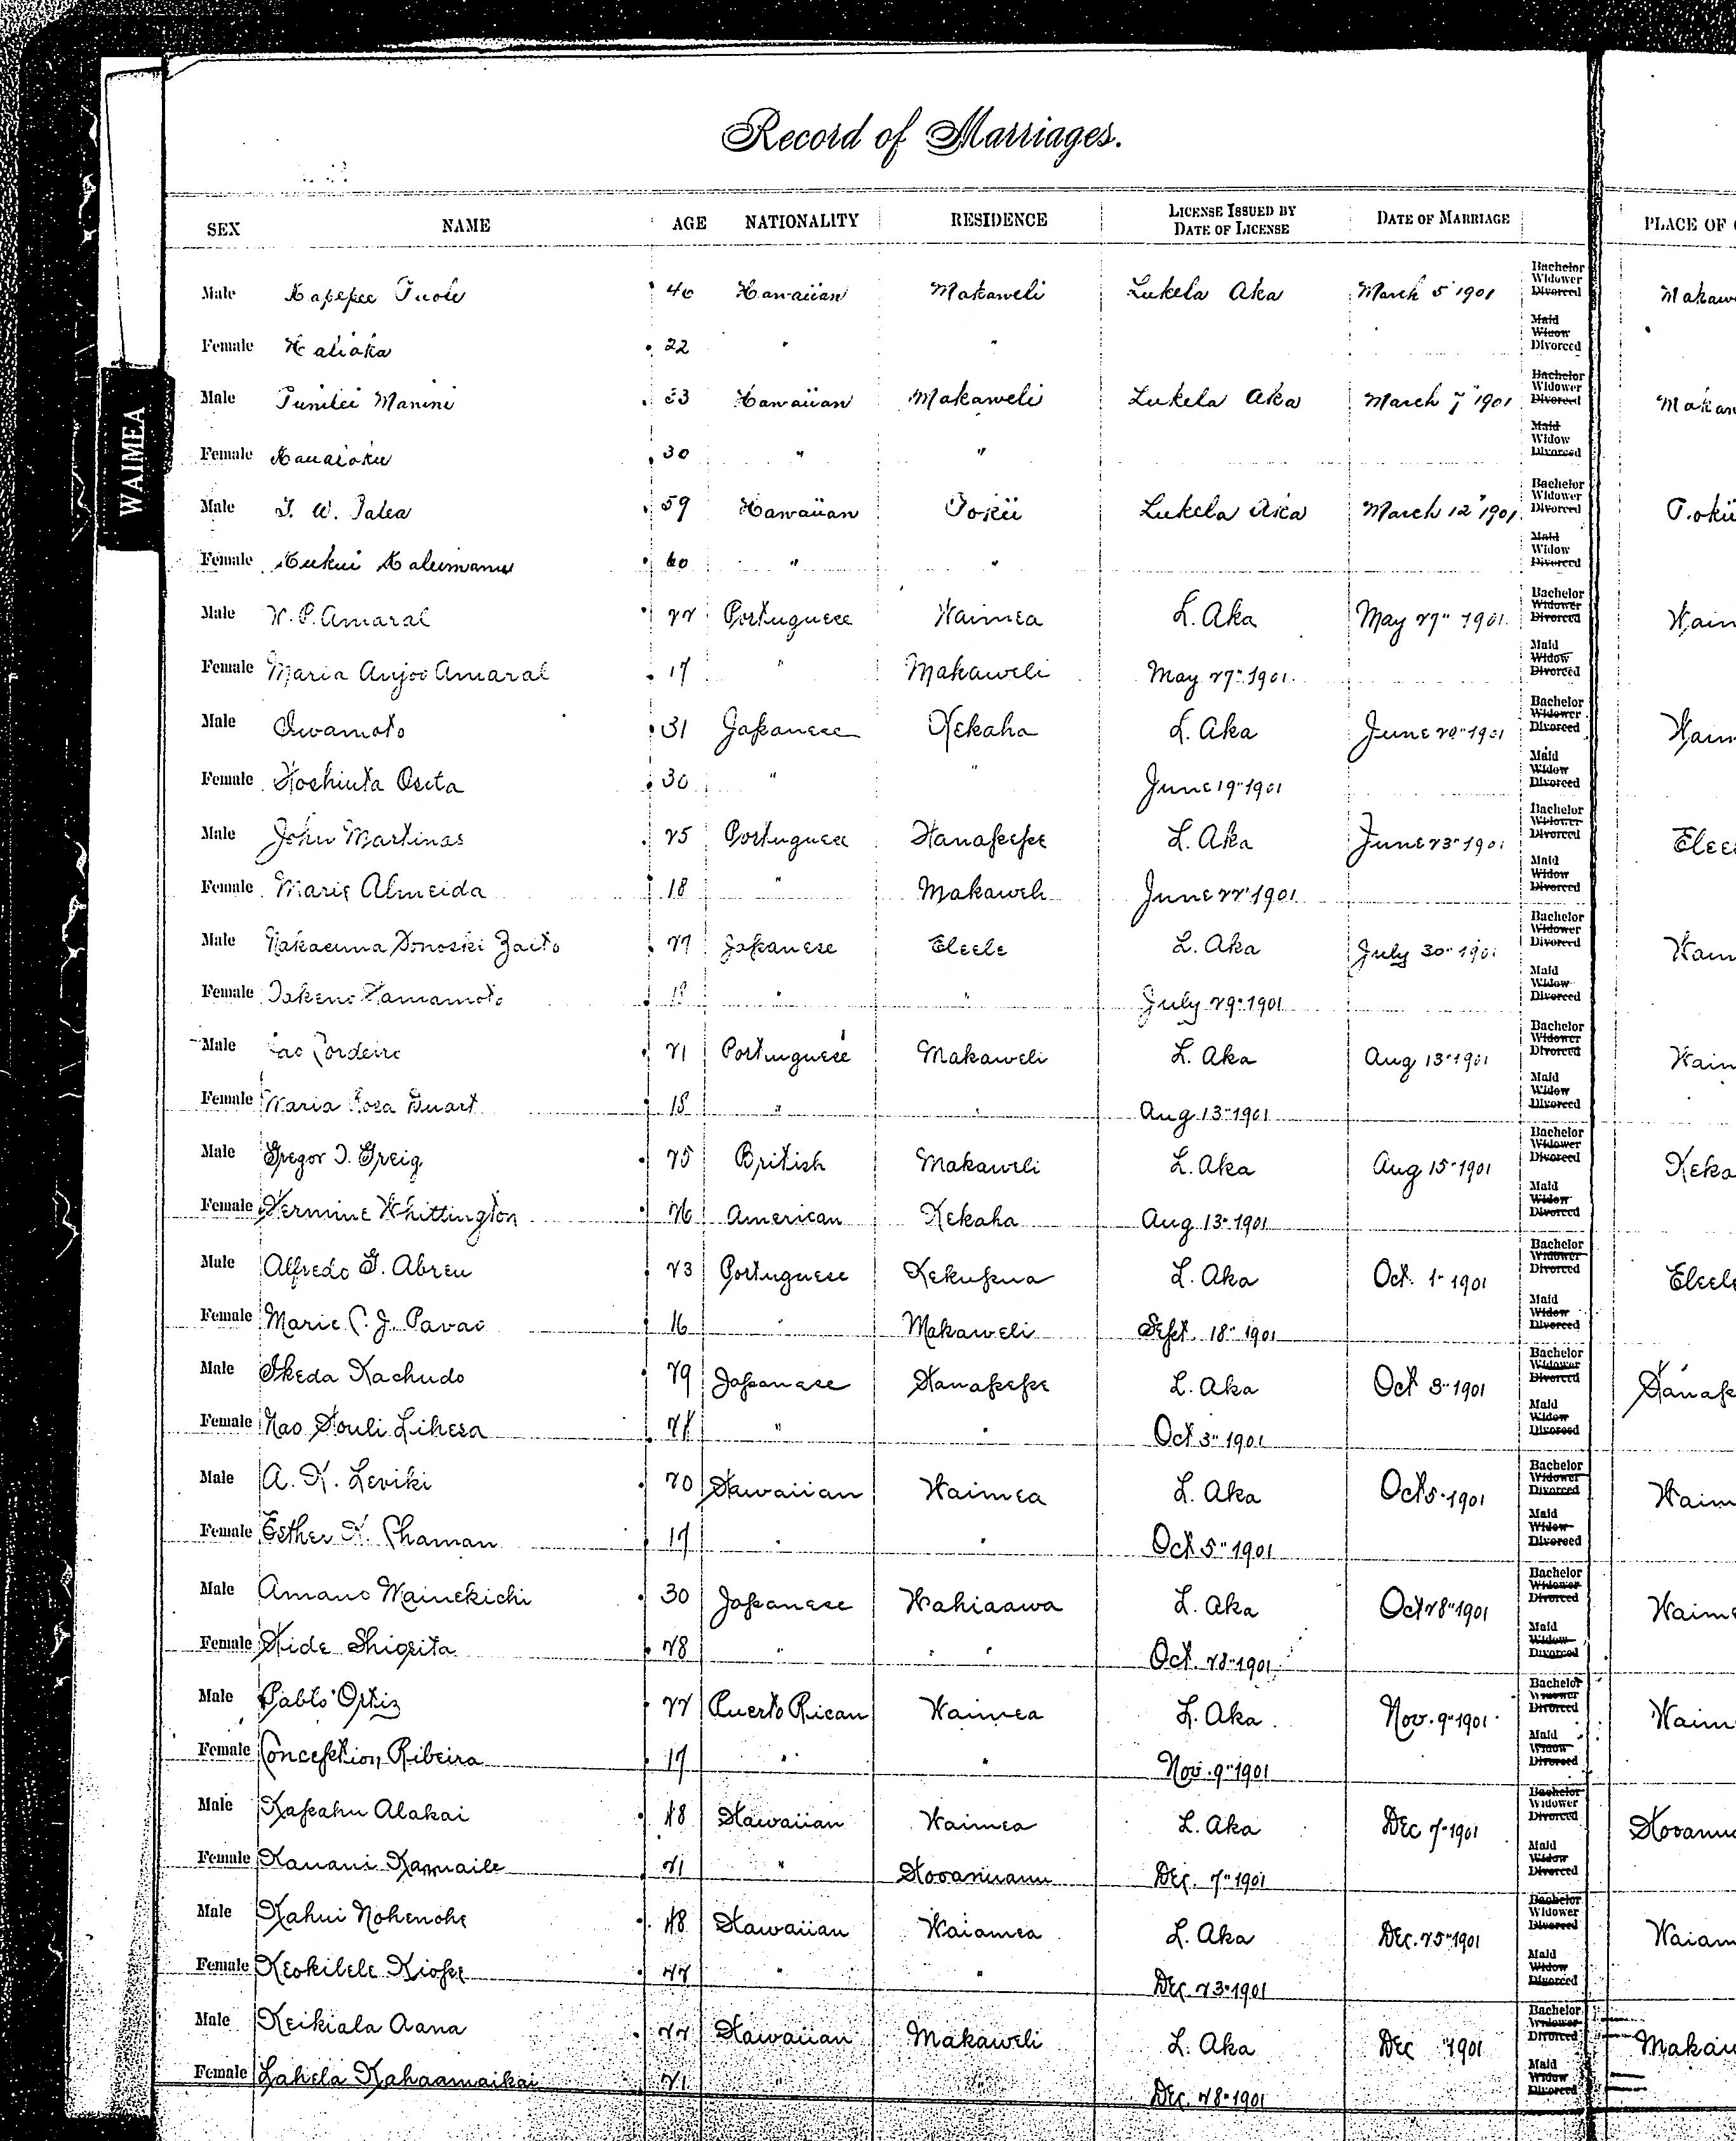 Record of Marriages.
SEX NAME AGE NATIONALITY RESIDENCE LICENSE ISSUED BY DATE OF LICENSE DATE OF MARRIAGE PLACE OF
WAIMEA
Male 40 Hawaiian Makaweli Lukela Aka March 5 1901 Bachelor Widower Divorced Makaw
Female Kaliaka 22 " " Maid Widow Divorced
Male Manini Hawaiian Makaweli Lukela Aka March 7 1901 Bachelor Widower Divorced Makaw
Female 30 " " Maid Widow Divorced
Male 59 Hawaiian Pokii Lukela Aka March 12" 1901 Bachelor Widower Divorced Pokii
Female Kukui 60 " " Maid Widow Divorced
Male W. P. Amaral 22 Portuguese Waimea L. Aka May 29" 1901 Bachelor Widower Divorced Waim
Female Maria Anjoo Amaral 17 " Makaweli May 27" 1901 Maid Widow Divorced
Male Iwamoto 31 Japanese Kekaha L. Aka June 20" 1901 Bachelor Widower Divorced Waim
Female Hoshiuta Oseta 30 " " June 19" 1901 Maid Widow Divorced
Male John Martinas 25 Portuguese Hanapepe L. Aka June 23" 1901 Bachelor Widower Divorced Elee
Female Marie Almeida 18 " Makaweli June 22" 1901 Maid Widow Divorced
Male 27 Japanese Eleele L. Aka July 30" 1901 Bachelor Widower Divorced Waim
Female Takeno Yamamoto " " July 29" 1901 Maid Widow Divorced
Male Cordeiro 21 Portuguese Makaweli L. Aka Aug 13" 1901 Bachelor Widower Divorced Waim
Female Maria Rosa Duart 18 " " Aug 13" 1901 Maid Widow Divorced
Male Gregor I. Greig 25 British Makaweli L. Aka Aug 15" 1901 Bachelor Widower Divorced Keka
Female Hermine Whittington 26 American Kekaha Aug 13" 1901 Maid Widow Divorced
Male Alfredo G. Abreu 23 Portuguese Kekupua L. Aka Oct. 1" 1901 Bachelor Widower Divorced Eleel
Female Marie C. J. Pavao 16 " Makaweli Sept. 18" 1901 Maid Widow Divorced
Male Ikeda Kachudo 29 Japanese Hanapepe L. Aka Oct 3" 1901 Bachelor Widower Divorced Hanap
Female Nao Souli Lihesa 21 " " Oct 3" 1901 Maid Widow Divorced
Male A. K. Leviki 20 Hawaiian Waimea L. Aka Oct 5" 1901 Bachelor Widower Divorced Waim
Female Esther K. Chaman 17 " " Oct 5" 1901 Maid Widow Divorced
Male Amano Mainekichi 30 Japanese Wahiaawa L. Aka Oct 28" 1901 Bachelor Widower Divorced Waime
Female Hide Shigita 28 " " Oct. 28" 1901 Maid Widow Divorced
Male Pablo Ortiz 22 Puerto Rican Waimea L. Aka Nov. 9" 1901 Bachelor Widower Divorced Waim
Female Conception Ribeira 17 " " Nov. 9" 1901 Maid Widow Divorced
Male Kapahu Alakai 48 Hawaiian Waimea L. Aka Dec 7" 1901 Bachelor Widower Divorced Hooanu
Female Kanani Kamaile 21 " Hooanuanu Dec. 7" 1901 Maid Widow Divorced
Male Kahui Nohenohe 48 Hawaiian Waiamea L. Aka Dec. 25" 1901 Bachelor Widower Divorced Waiam
Female Keokilele Kiope " " Dec. 23" 1901 Maid Widow Divorced
Male Keikiala Aana 22 Hawaiian Makaweli L. Aka Dec 1901 Bachelor Widower Divorced Makaw
Female Lahela Kahaamaikai 21 " " Dec. 28" 1901 Maid Widow Divorced